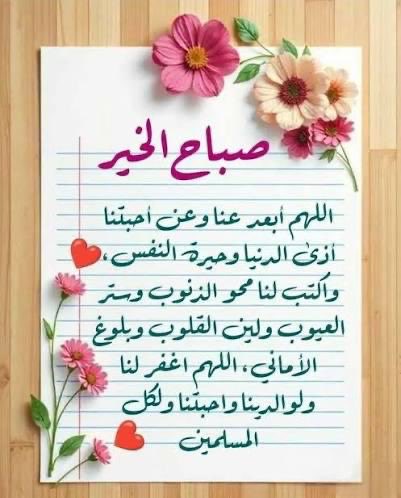 صباح الخير
اللهم أبعد عنا وعن أحبتنا
أذى الدنيا وحيرة النفس،
واكتب لنا محو الذنوب وستر
العيوب ولين القلوب وبلوغ
الأماني، اللهم اغفر لنا
ولوالدينا واحبتنا ولكل
المسلمين